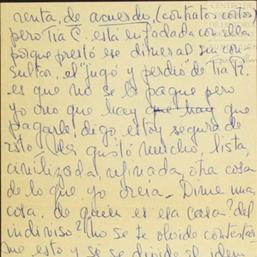 renta, de acuerdo, (contratos cortos)
pero Tía C. está enfadada con ella
porque prestó ese dineral sin con
sultar, el "jugó y perdió" de Tía P.
es que no se lo pague pero
yo creo que hay que hay que
pagarle, digo, estoy segura de
esto. Me gustó mucho, lista,
civilizada, refinada, otra cosa
de lo que yo creía. Dime una
cosa, de quién es esa casa? del
indiviso? no se te olvide contestar
me esto y si se divide el